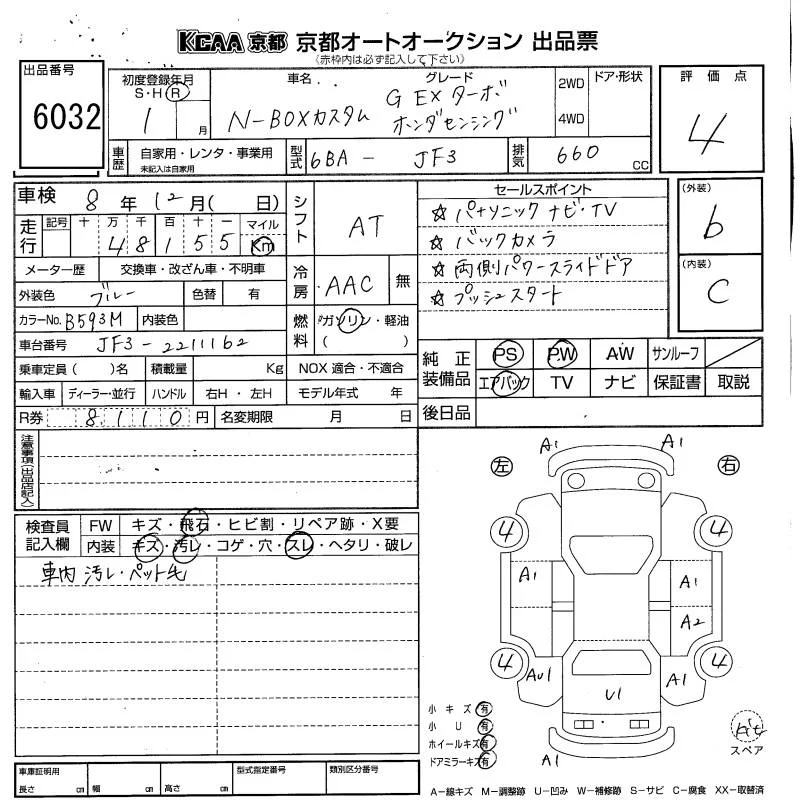 KCAA 京都 京都オートオークション 出品票
(赤枠内は必ず記入して下さい)
出品番号
6032
初度登録年月
S・H・R
1 月
車名
N-BOXカスタム
グレード
G EX ターボ
ホンダセンシング
2WD
4WD
ドア・形状
評価点
4
車歴
自家用・レンタ・事業用
未記入は自家用
型式
6BA - JF3
排気
660 CC
車検 8年 12月( 日)
走行
記号 十 万 千 百 十 一 マイル
4 8 1 5 5 Km
メーター歴 交換車・改ざん車・不明車
外装色 ブルー 色替 有
カラーNo. B593M 内装色
車台番号 JF3-2211162
乗車定員( )名 積載量 Kg
輸入車 ディーラー・並行 ハンドル 右H・左H モデル年式 年
R券 8,110 円 名変期限 月 日
シフト AT
冷房 AAC 無
燃料 ガソリン・軽油
( )
NOX 適合・不適合
セールスポイント
☆ パナソニック ナビ・TV
☆ バックカメラ
☆ 両側パワースライドドア
☆ プッシュスタート
(外装)
b
(内装)
C
純正装備品
PS PW AW サンルーフ
エアバック TV ナビ 保証書 取説
後日品
注意事項(出品店記入)
検査員記入欄
FW キズ・飛石・ヒビ割・リペア跡・X要
内装 キズ・汚レ・コゲ・穴・スレ・ヘタリ・破レ
車内 汚レ・ペット毛
左 右
A1 A1
4 4
A1 A1
A2
4 4
AU1 A1
U1
A1
小キズ 有
小U 有
ホイールキズ 有
ドアミラーキズ 有
スペア
車庫証明用
長さ cm 幅 cm 高さ cm
型式指定番号
類別区分番号
A−線キズ M−調整跡 U−凹み W−補修跡 S−サビ C−腐食 XX−取替済